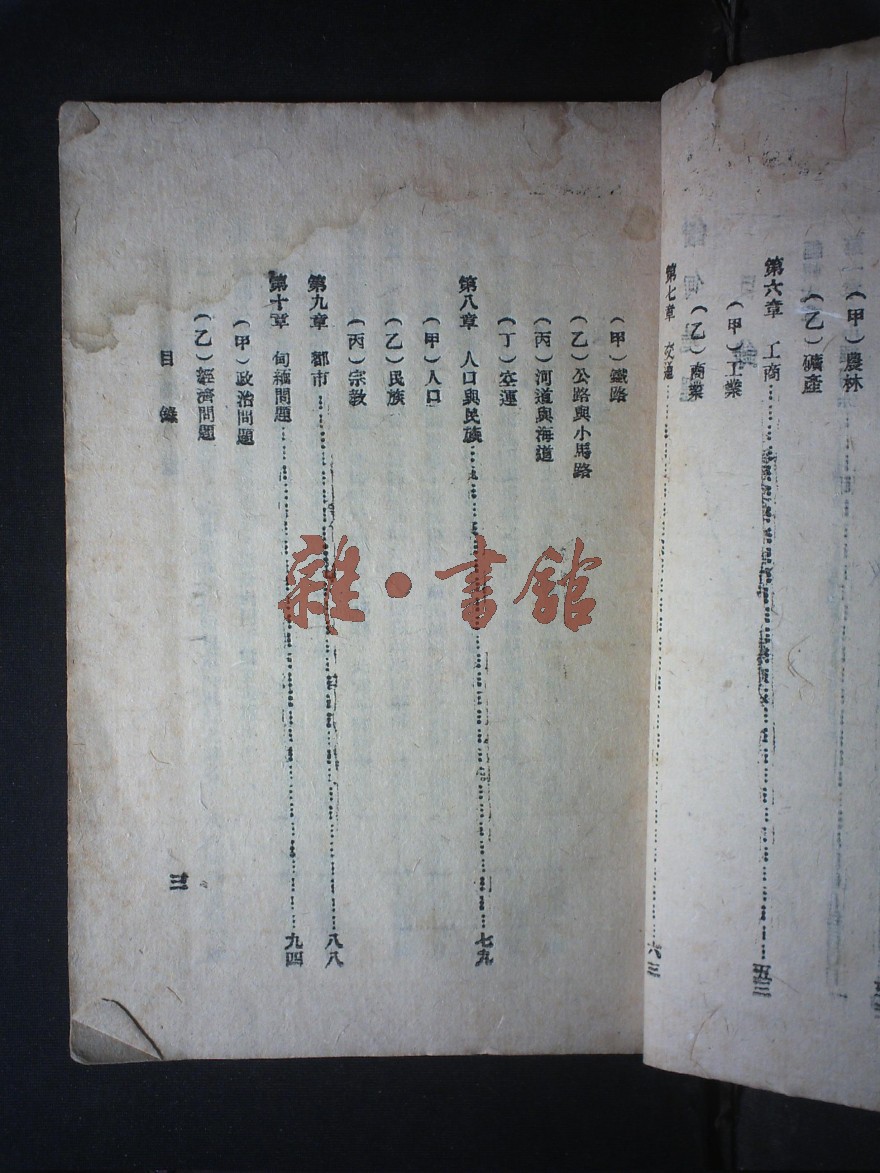 (甲)農林
(乙)礦產
第六章 工商……五三
(甲)工業
(乙)商業
第七章 交通……六三
(甲)鐵路
(乙)公路與小馬路
(丙)河道與海道
(丁)空運
第八章 人口與民族……七九
(甲)人口
(乙)民族
(丙)宗教
第九章 都市……八八
第十章 甸緬問題……九四
(甲)政治問題
(乙)經濟問題
目錄
三
雜·書館